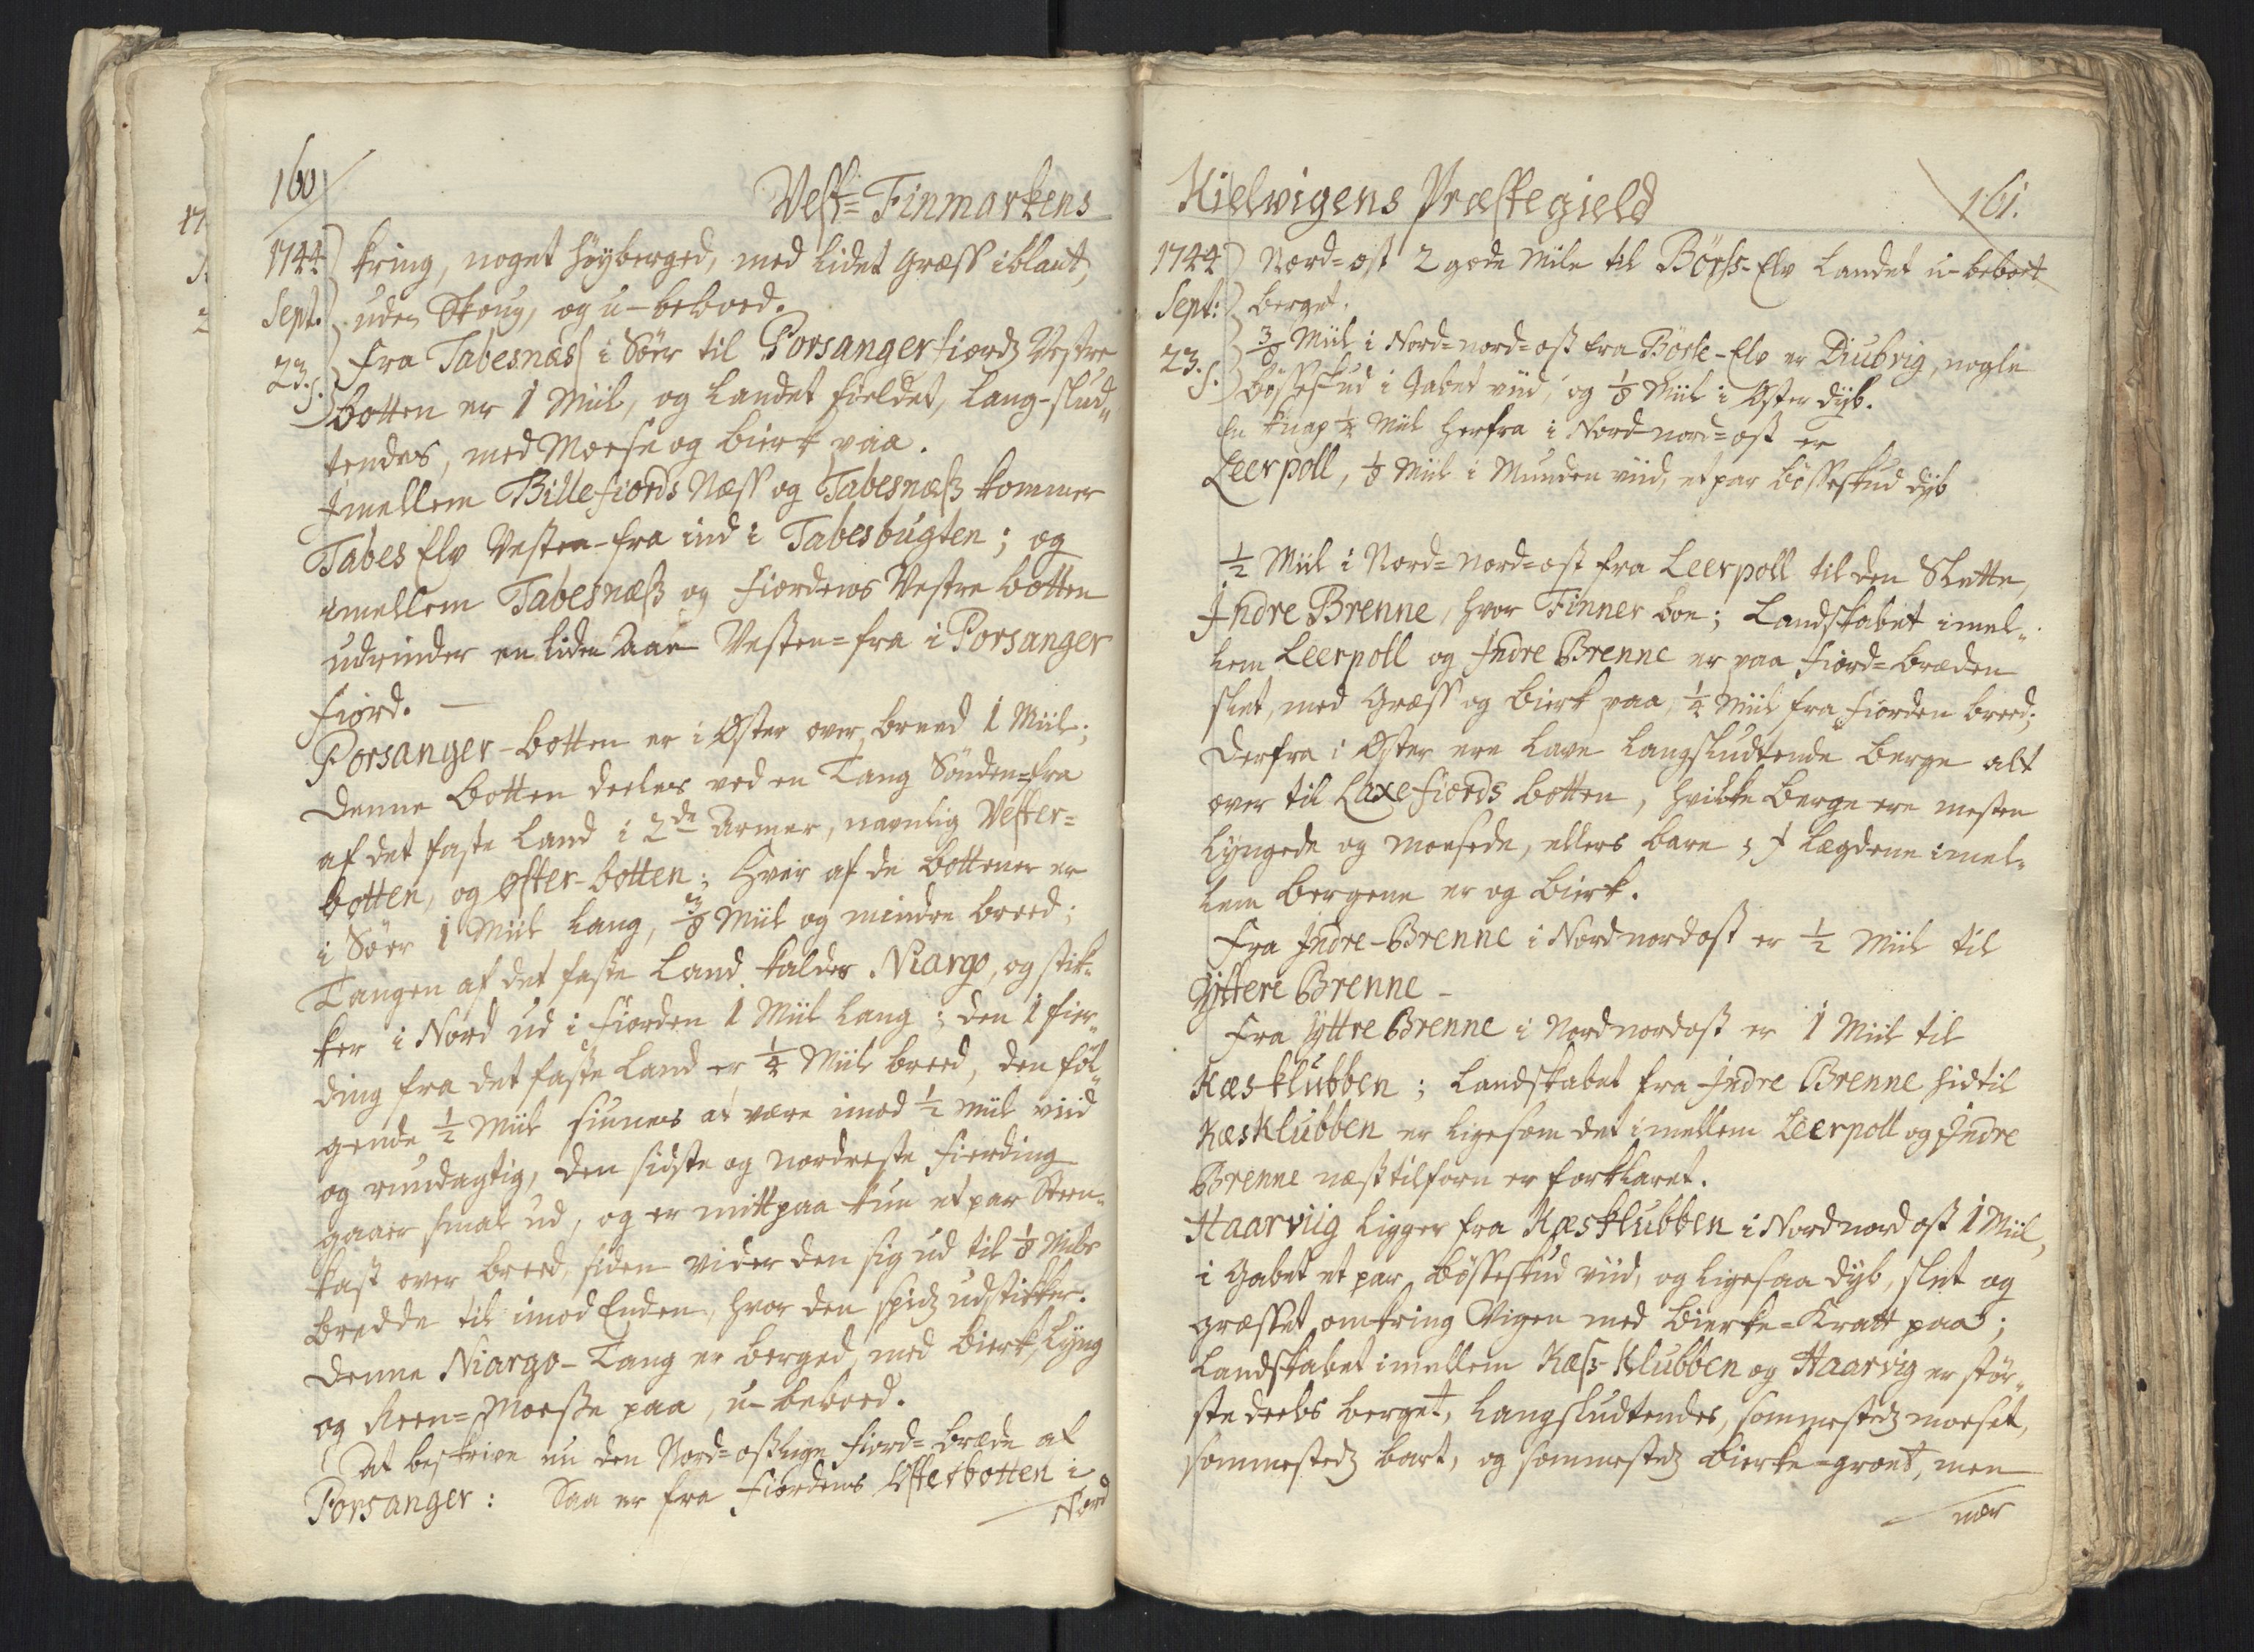 160
Vest=Finmarkens
1744
Sept.
23. s.
kring, noget høyberged, med lidet Græss iblant,
uden Skoug, og u-beboed.
Fra Tabesnæss i Söer til Porsangerfiords Vestre
botten er 1 Miil, og Landet fieldet, Lang-slud„
tendes, med Moese og bierk paa.
Imellem Billefiords Næss og Tabesnæss kommer
Tabes Elv Vesten-fra ind i Tabesbugten; og
imellem Tabesnæss og fiordens Vestre botten
udrinder en liden Aae Vesten=fra i Porsanger
fiord.
Porsanger-botten er i Øster over breed 1 Miil;
denne botten deeles ved en Tang Sønden=fra
af det faste Land i 2de Armer, navnlig Vester=
botten, og Øster-botten; hver af de bottener er
i Söer 1 Miil lang, 3/8 Miil og mindre breed;
Tangen af det faste Land kaldes Niargo, og stik„
ker i Nord ud i fiorden 1 Miil lang; den 1 fier„
ding fra det faste Land er 1/4 Miil breed, den föl„
gende 1/2 Miil siunes at være imod 1/2 Miil viid
og rundagtig, den sidste og nordreste fierding
gaaer smal ud, og er mittpaa kun et par Steen„
kast over breed, siden vider den sig ud til 1/8 Miils
bredde til imod Enden, hvor den spids udstikker.
Denne Niargo-Tang er berged, med bierk, Lyng
og Reen=Moesse paa, u-beboed.
At beskrive nu den Nord=ostlige fiord=bræde af
Porsanger: Saa er fra fiordens Østerbotten i
Nord
Kielwigens Præstegield
161.
1744
Sept:
23. s.
Nord=ost 2 gode Mile til Börss-Elv Landet u-beboet
berget.
3/8 Miil i Nord=nord=ost fra Börse-Elv er Diubvig, nogle
bösseskud i Gabet viid, og 1/8 Miil i Øster dyb.
En knap 1/4 Miil herfra i Nord nord=ost er
Leerpoll, 1/8 Miil i Munden viid, et par bösseskud dyb
1/2 Miil i Nord=Nord=ost fra Leerpoll til den Slette,
Indre Brenne, hvor Finner boe; Landskabet imel„
lem Leerpoll og Indre Brenne er paa fiord=bræden
slet, med Græss og bierk paa, 1/4 Miil fra fiorden breed;
Derfra i Øster ere lave langsludtende berge alt
over til Laxefiords botten, hvilke berge ere mesten
lyngede og moesede, ellers bare; I lægderne imel„
lem bergene er og bierk.
Fra Indre-Brenne i Nordnordost er 1/2 Miil til
Yttere Brenne-
Fra Yttre Brenne i Nordnordost er 1 Miil til
Kæsklubben; Landskabet fra Indre Brenne hidtil
Kæsklubben er ligesom det imellem Leerpoll og Indre
Brenne næst tilforn er forklaret.
Haarviig ligger fra Kæsklubben i Nordnordost 1 Miil,
i Gabet et par bösseskud viid, og ligesaa dyb, slet og
græsset omkring Vigen med bierke=Kratt paa;
Landskabet imellem Kæss-Klubben og Haarvig er stör„
ste deels berget, langsludtendes, sommesteds moeset,
sommesteds bart, og sommesteds bierke-groet, men
nær